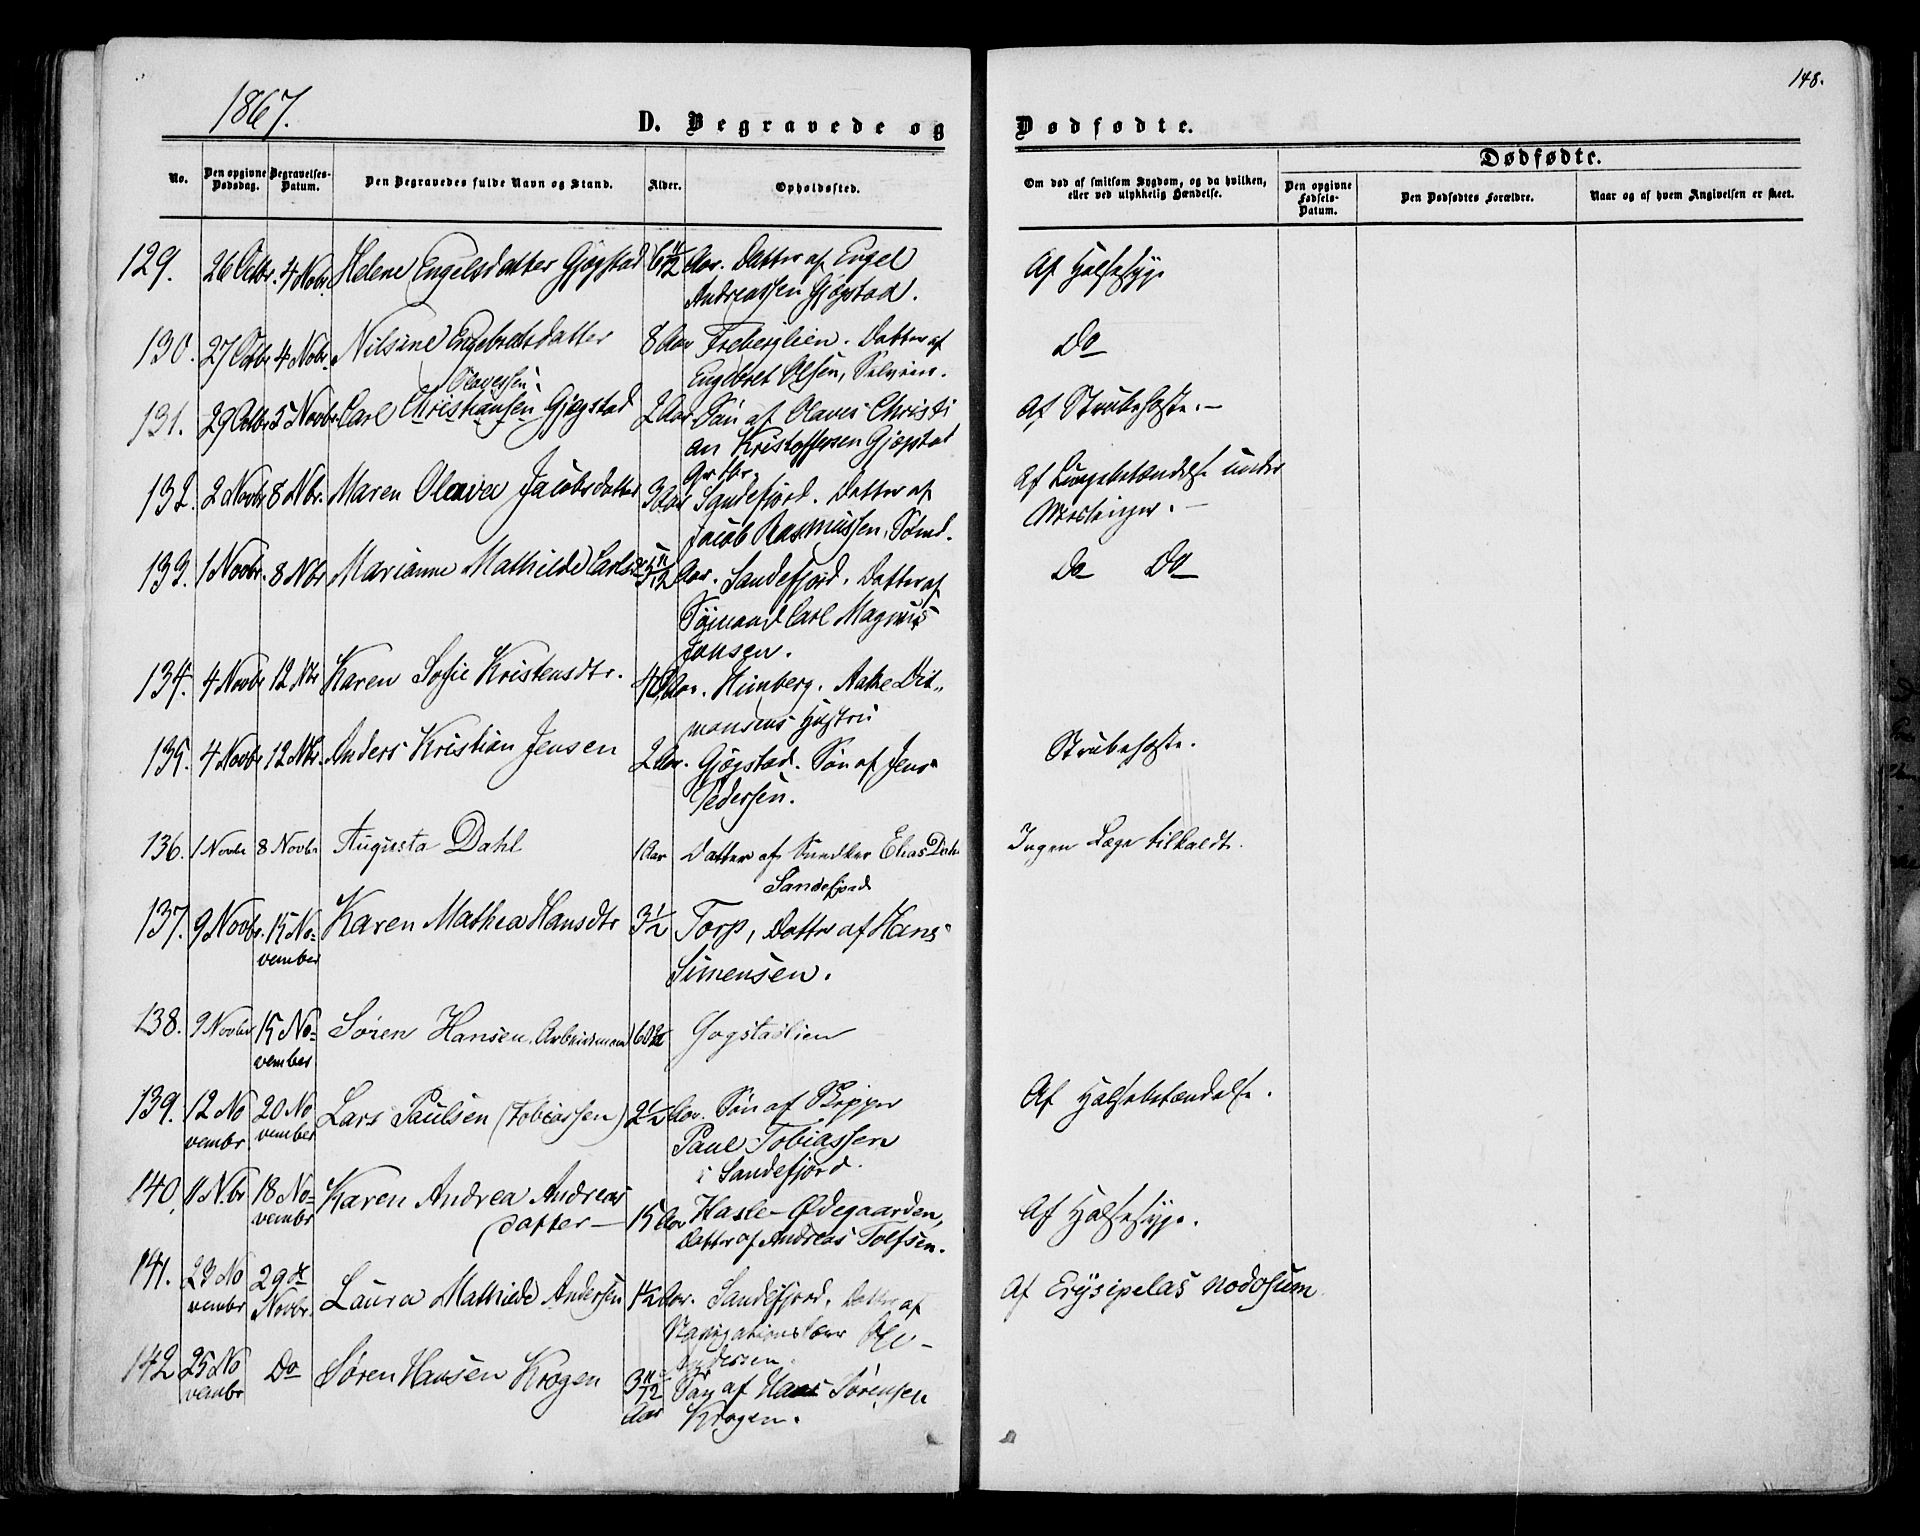 1867.
148.
D. Begravede og Dødfødte.
No.
Den opgivne Dødsdag.
Begravelses-Datum.
Den Begravedes fulde Navn og Stand.
Alder.
Opholdssted.
Om død af smitsom Sygdom, og da hvilken, eller ved ulykkelig Hændelse.
Dødfødte.
Den opgivne Fødsels-Datum.
Den Dødfødtes Forældre.
Naar og af hvem Angivelsen er skeet.
129. 26 Octbr. 4 Novbr. Helene Engelsdatter Gjøgstad 6 11/12 Aar. Datter af Engel Af Halssyge
Andreassen Gjøgstad.
130. 27 Octbr 4 Nobr. Nilsine Engebretsdatter 8 Aar Freberglien. Datter af Do
Engebret Olsen,
Olavessen.
131. 29 Octbr 5 Novbr Carl Christiansen Gjøgstad 2 Aar Søn af Olaves Christi Af Strubehoste.-
an Kristoffersen Gjøgstad
132. 2 Novbr 8 Nbr. Maren Olava Jacobsdatter 3 Aar Sandefjord. Datter af Af Lungebetændelse under
Jacob Rasmussen, Sømd. Mæslinger.-
133. 1 Novbr. 8 Nbr Marianne Mathilde Carlsen 3 11/12 Aar. Sandefjord. Datter af Do Do
Sømand Carl Magnus
Jonsen.
134. 4 Novbr 12 Nbr Karen Sofie Kristensdtr. Aar. Himberg.
Hustru
135. 4 Novbr 12 Nbr. Anders Kristian Jensen 2 Aar. Gjøgstad. Søn af Jens Strubehoste.
Pedersen.
136. 1 Novbr 8 Novbr Augusta Dahl 1 Aar Datter af Snedker Elias Dahl Ingen Læge tilkaldt.
Sandefjord
137. 9 Novbr. 15 No- Karen Mathea Hansdtr 3 1/2 Torp, Datter af Hans
vember Simensen.
138. 9 Novbr 15 No- Søren Hansen, Arbeidsmand 60 Gogstadlien
vember
139. 12 No 20 No Lars Paulsen (Tobiassen) 2 1/2 Aar. Søn af Skipper Af Halsebetændelse.
vembr vember Paul Tobiassen
i Sandefjord.
140. 11 Nbr 18 No- Karen Andrea Andreas
vembr datter- 15 Aar Hasle-Ødegaarden, Af Halsesyge.
Datter af Andreas Tolfsen.
141. 23 No 29de Laura Mathilde Andersen 1 1/2 Aar. Sandefjord. Datter af Af Erysipelas nodosum.
vembr Novbr. Navigationslærer
Andersen.
142 25 No Do Søren Hansen Krogen 3 11/12 Søn af Hans Sørensen
vembr Aar Krogen.